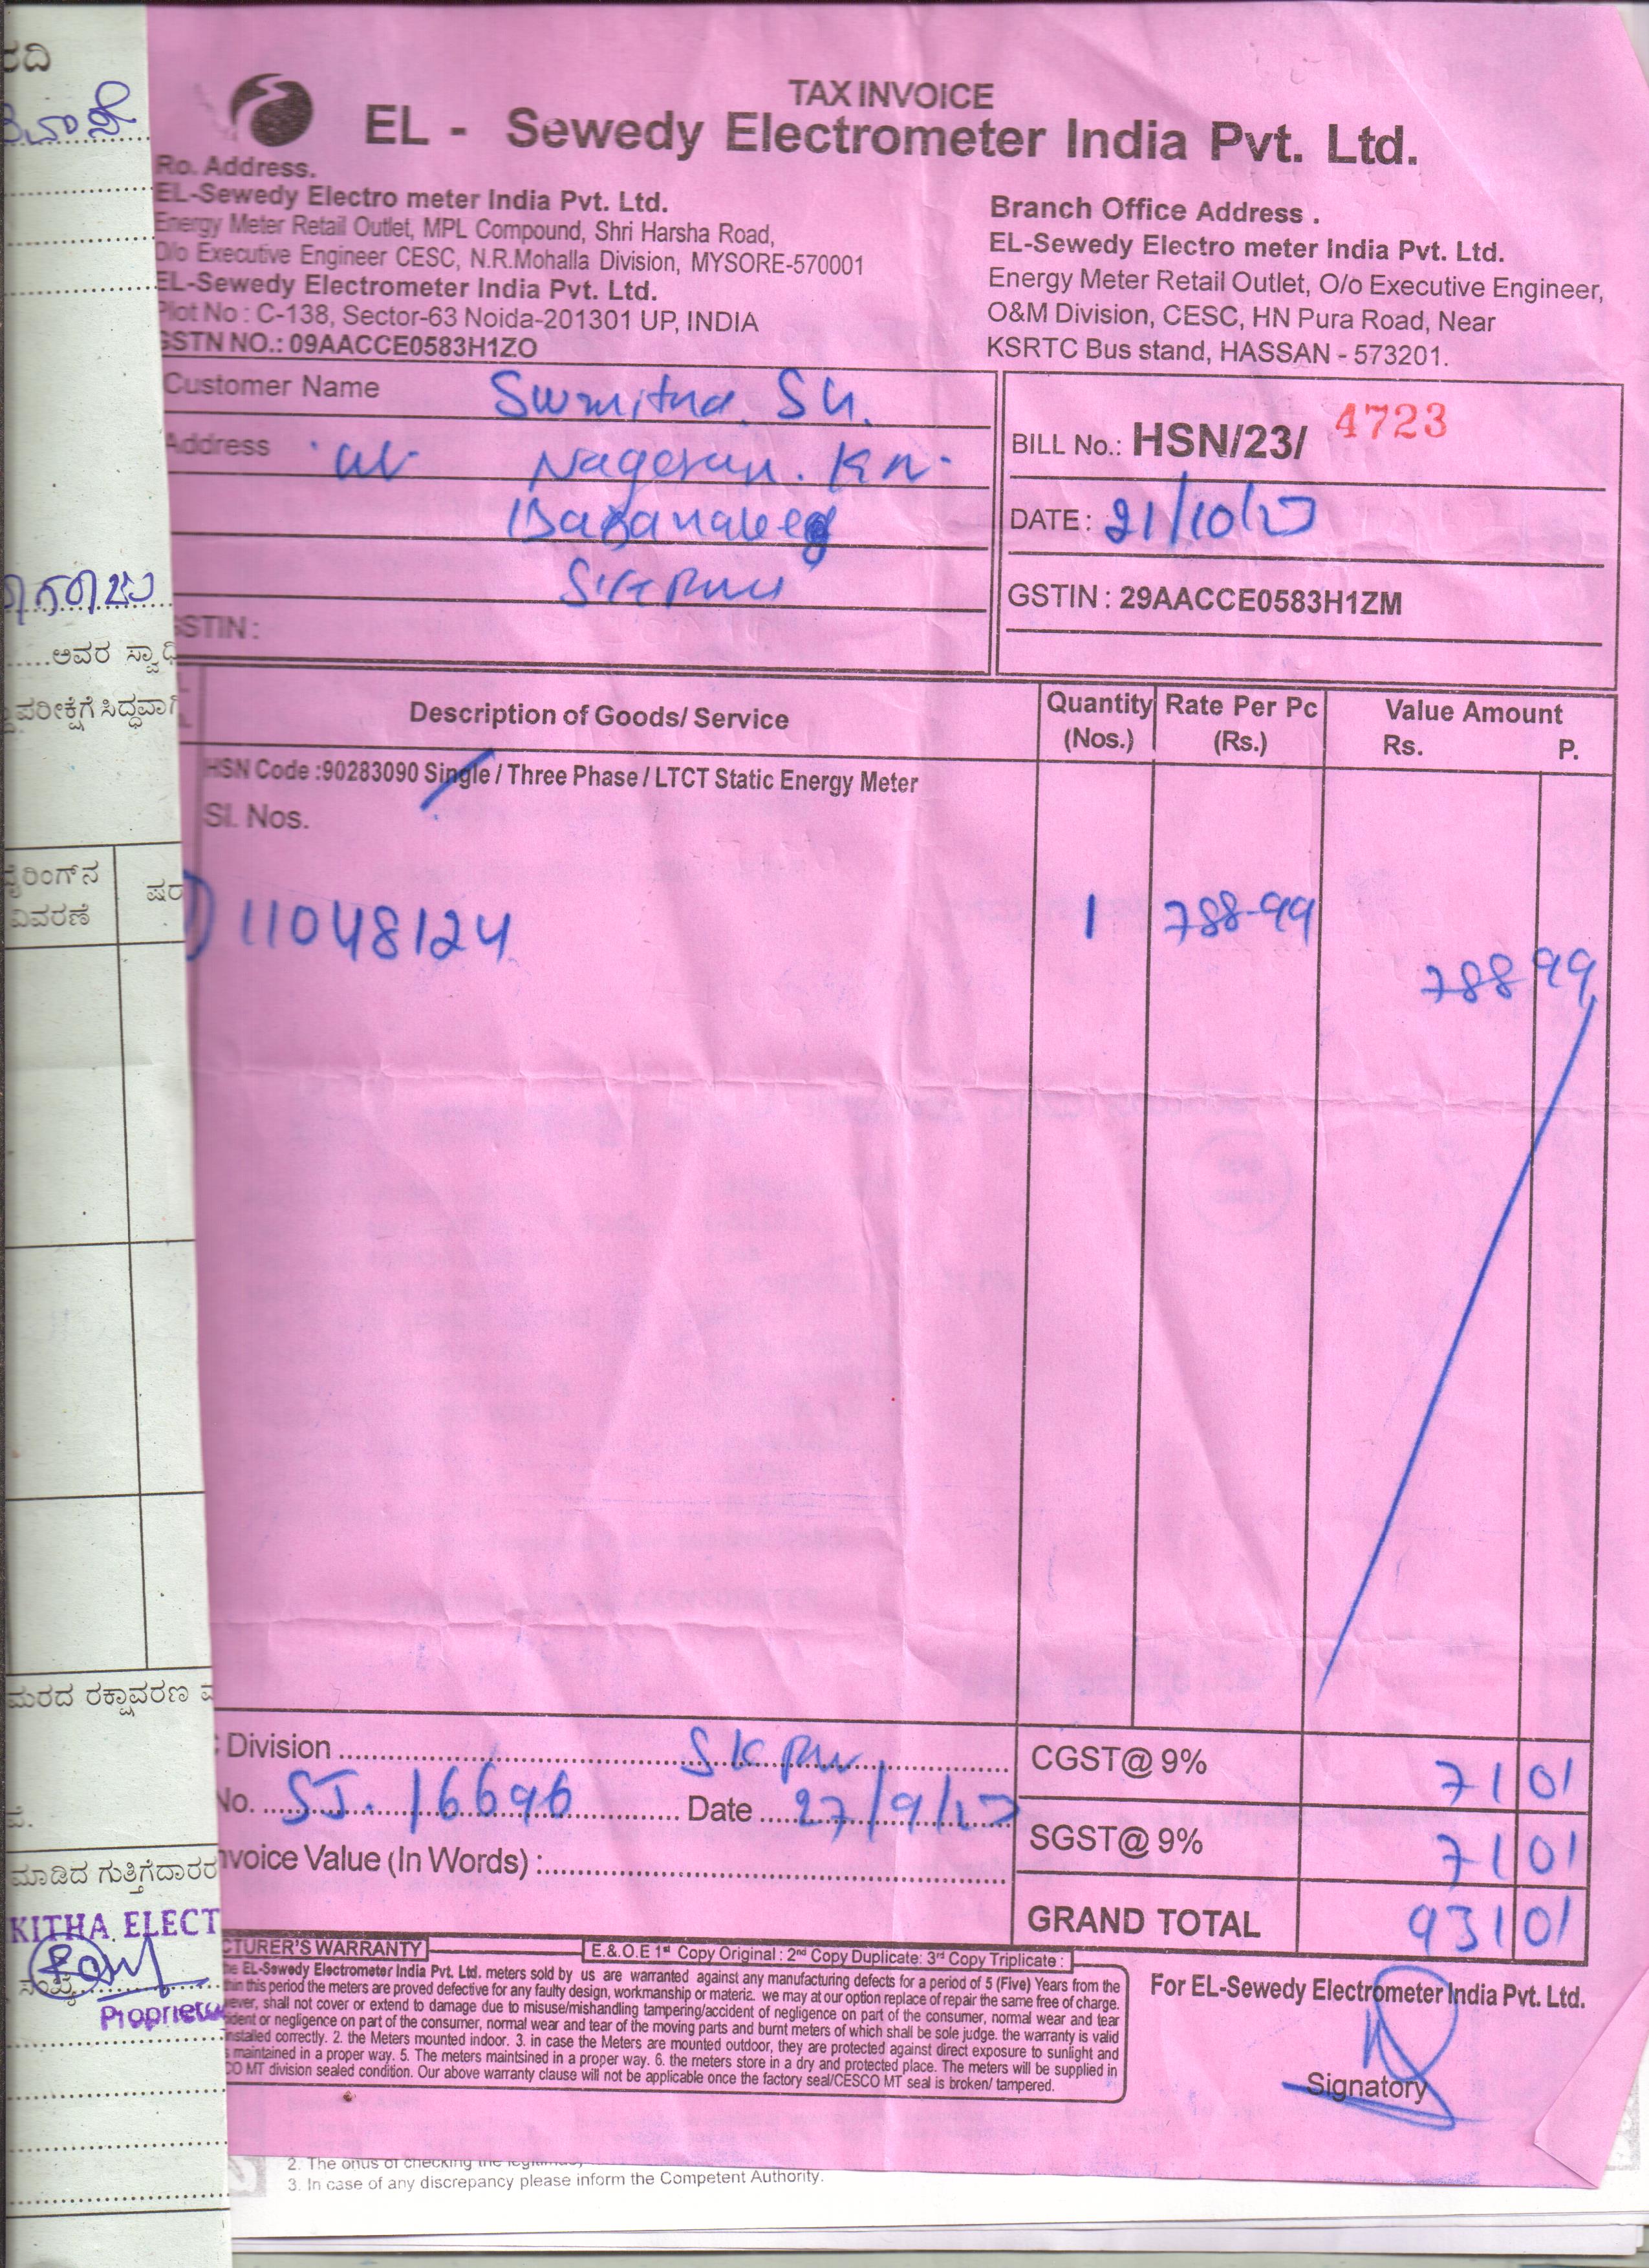 TAX INVOICE
EL - Sewedy Electrometer India Pvt. Ltd.
Ro. Address.
EL-Sewedy Electro meter India Pvt. Ltd.
Energy Meter Retail Outlet, MPL Compound, Shri Harsha Road,
O/o Executive Engineer CESC, N.R.Mohalla Division, MYSORE-570001
EL-Sewedy Electrometer India Pvt. Ltd.
Plot No : C-138, Sector-63 Noida-201301 UP, INDIA
GSTN NO.: 09AACCE0583H1ZO
Branch Office Address .
EL-Sewedy Electro meter India Pvt. Ltd.
Energy Meter Retail Outlet, O/o Executive Engineer,
O&M Division, CESC, HN Pura Road, Near
KSRTC Bus stand, HASSAN - 573201.
Customer Name
Address
GSTIN :
BILL No.: HSN/23/ 4723
DATE : 21/10/23
GSTIN : 29AACCE0583H1ZM
Description of Goods/ Service
Quantity (Nos.)
Rate Per Pc (Rs.)
Value Amount
Rs. P.
HSN Code :90283090 Single / Three Phase / LTCT Static Energy Meter
Sl. Nos.
1) 11048124 1 788-99 788 99
Division SKPur
No. SJ. 16696 Date 27/9/23
Invoice Value (In Words) :
CGST@ 9% 71 01
SGST@ 9% 71 01
GRAND TOTAL 931 01
CTURER'S WARRANTY
E.&.O.E 1st Copy Original : 2nd Copy Duplicate: 3rd Copy Triplicate :
he EL-Sewedy Electrometer India Pvt. Ltd. meters sold by us are warranted against any manufacturing defects for a period of 5 (Five) Years from the
thin this period the meters are proved defective for any faulty design, workmanship or materic. we may at our option replace of repair the same free of charge.
wever, shall not cover or extend to damage due to misuse/mishandling tampering/accident of negligence on part of the consumer, normal wear and tear
ident or negligence on part of the consumer, normal wear and tear of the moving parts and burnt meters of which shall be sole judge. the warranty is valid
installed correctly. 2. the Meters mounted indoor. 3. in case the Meters are mounted outdoor, they are protected against direct exposure to sunlight and
s maintained in a proper way. 5. The meters maintsined in a proper way. 6. the meters store in a dry and protected place. The meters will be supplied in
CO MT division sealed condition. Our above warranty clause will not be applicable once the factory seal/CESCO MT seal is broken/ tampered.
For EL-Sewedy Electrometer India Pvt. Ltd.
Signatory
2. The onus of checking the
3. In case of any discrepancy please inform the Competent Authority.
ರದಿ
ಅವರ ಸ್ವಾಧಿ
ಪರೀಕ್ಷೆಗೆ ಸಿದ್ಧವಾಗಿ
ವೈರಿಂಗ್‌ನ
ವಿವರಣೆ
ಷರ
ಮರದ ರಕ್ಷಾವರಣ
ಮಾಡಿದ ಗುತ್ತಿಗೆದಾರರ
KITHA ELECT
ಸಂಖ್ಯೆ
Proprieto